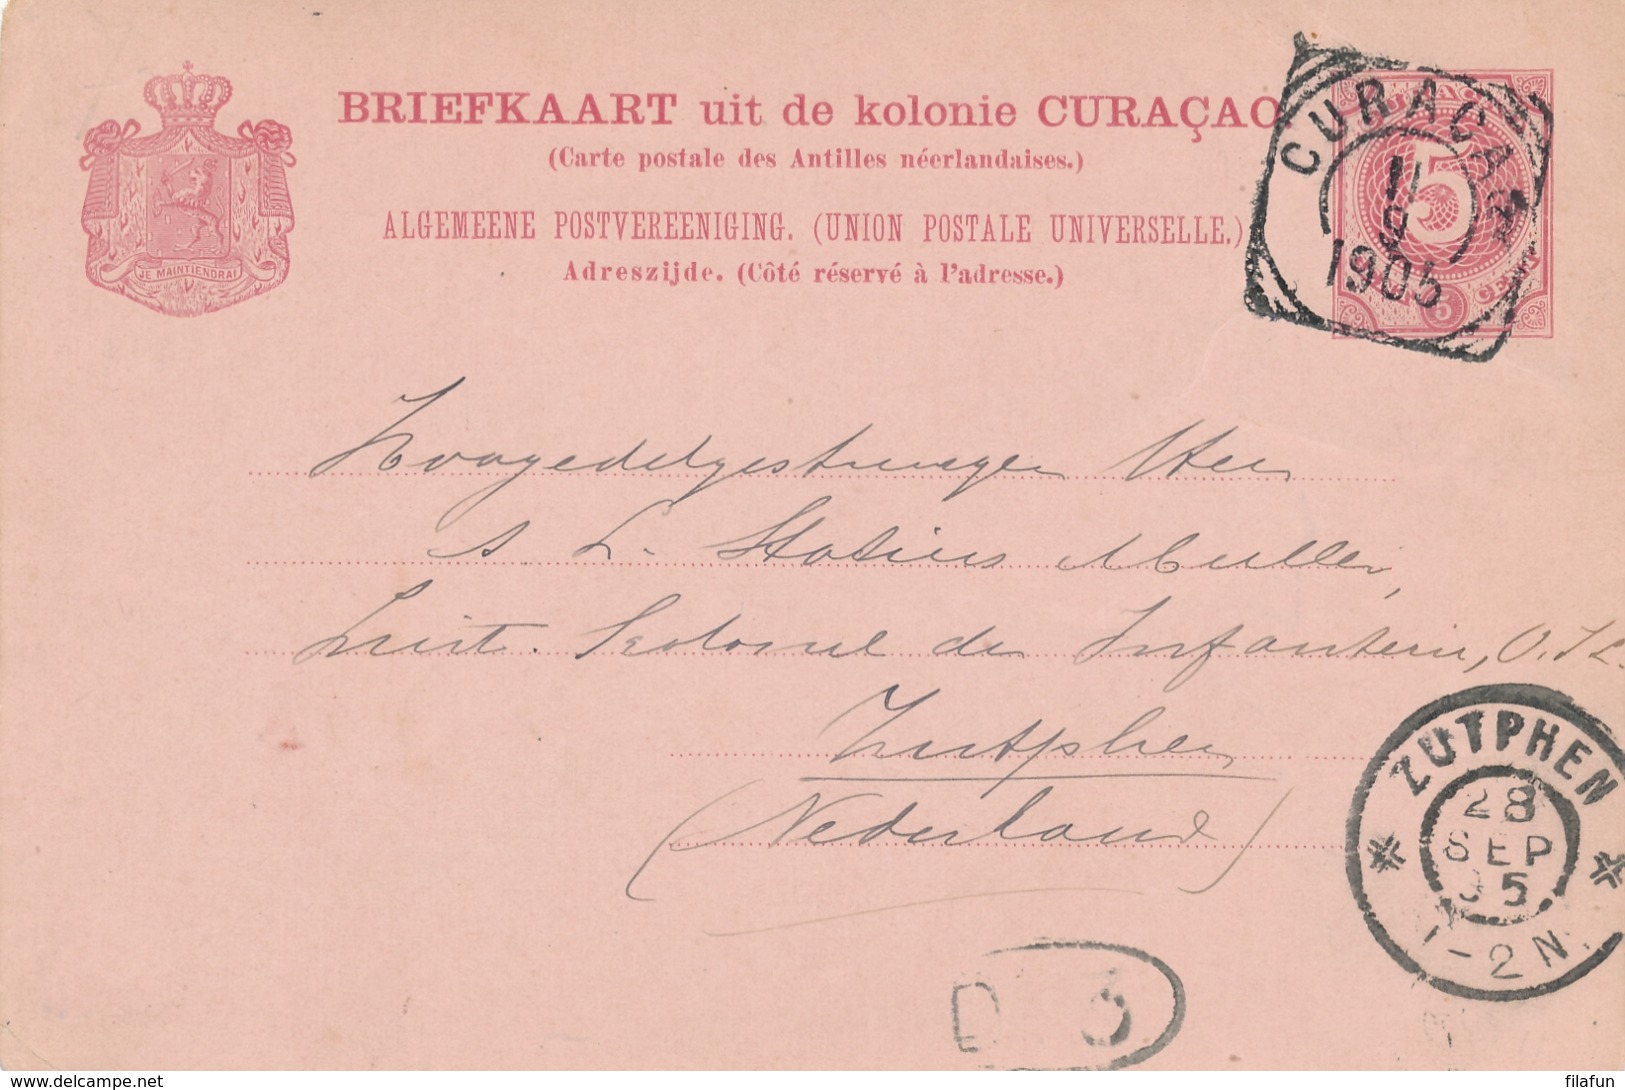 BRIEFKAART uit de kolonie CURAÇAO
(Carte postale des Antilles néerlandaises.)
ALGEMEENE POSTVEREENIGING. (UNION POSTALE UNIVERSELLE.)
Adreszijde. (Côté réservé à l'adresse.)
JE MAINTIENDRAI
CURAÇAO
5
CENT
5
CURACAO
11
9
1905
Hoogedelgestrengen Heer
L. Statius Muller,
Luit. Kolonel der Infanterie, O.I.L.
Zutphen
(Nederland)
ZUTPHEN
28
SEP
05
1-2N
D 6
delcampe.net
filafun